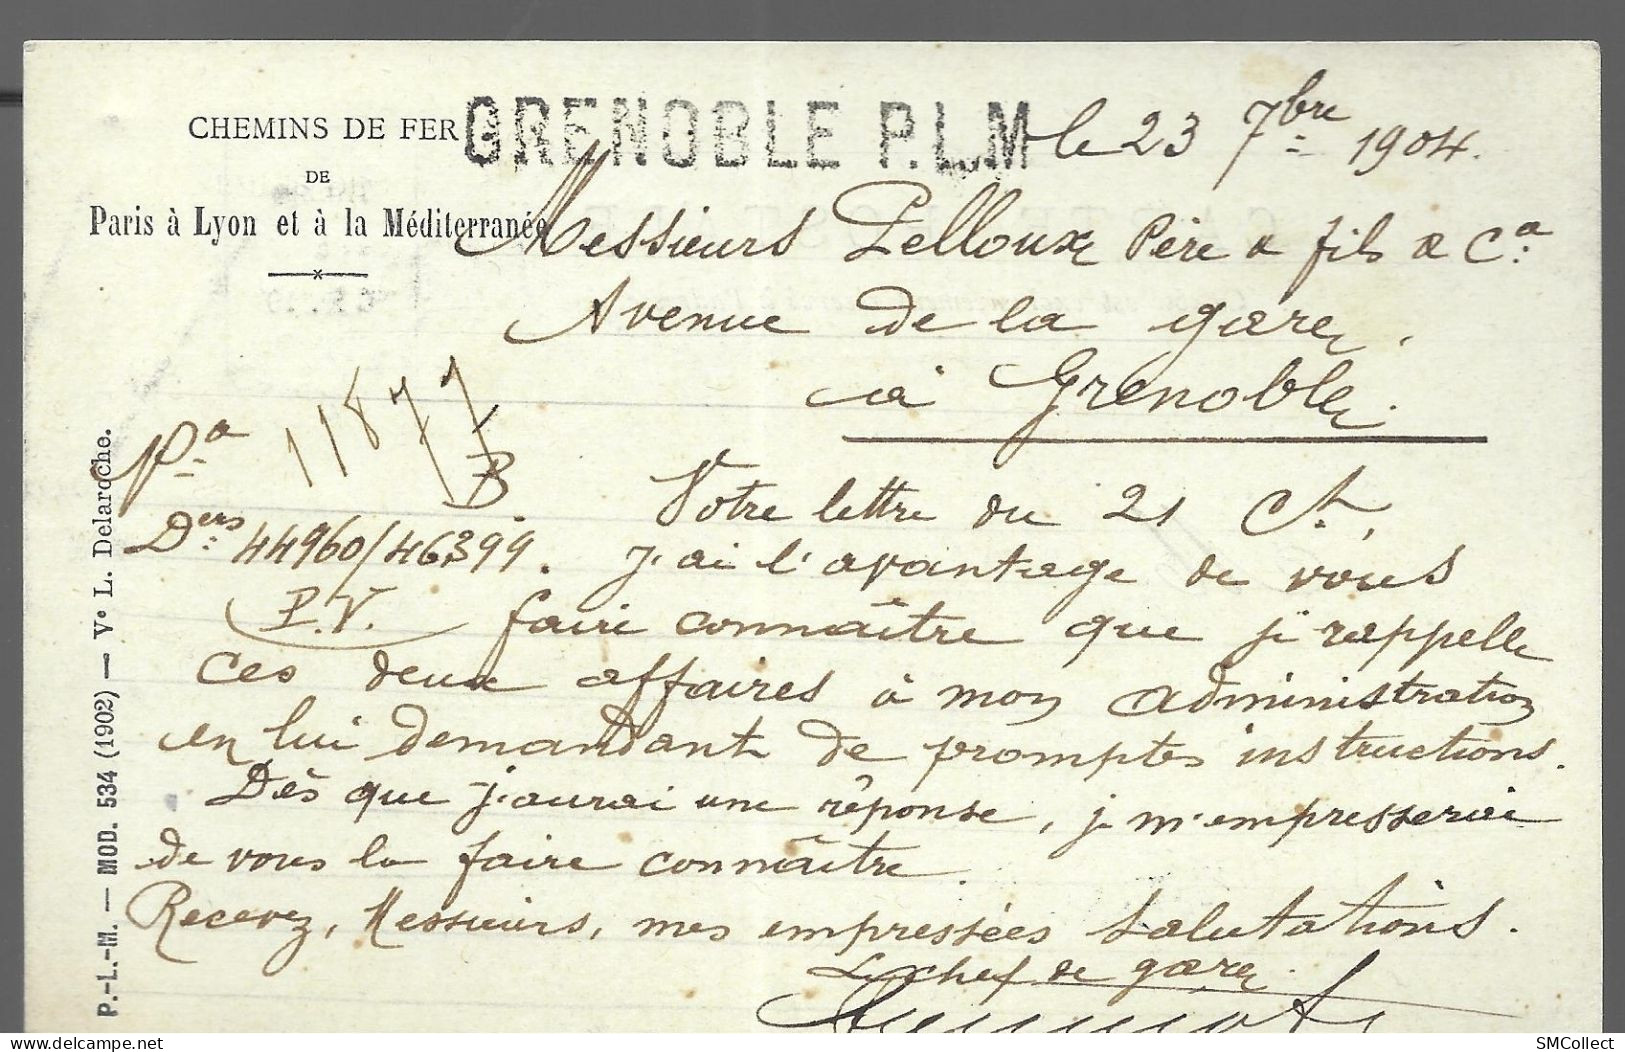 CHEMINS DE FER
DE
Paris à Lyon et à la Méditerranée
GRENOBLE P.L.M
le 23 7bre 1904.
Messieurs Pelloux Père & fils & Cie
Avenue de la gare,
à Grenoble.
Na 11877
B
Ders 44960/46399.
P.V.
Votre lettre du 21 Ct,
J'ai l'avantage de vous
faire connaître que je rappelle
ces deux affaires à mon administration
en lui demandant de promptes instructions.
Dès que j'aurai une réponse, je m'empresserai
de vous la faire connaître.
Recevez, Messieurs, mes empressées salutations.
Le chef de gare.
P.-L.-M. — MOD. 534 (1902) — Ve L. Delaroche.
SMCollect